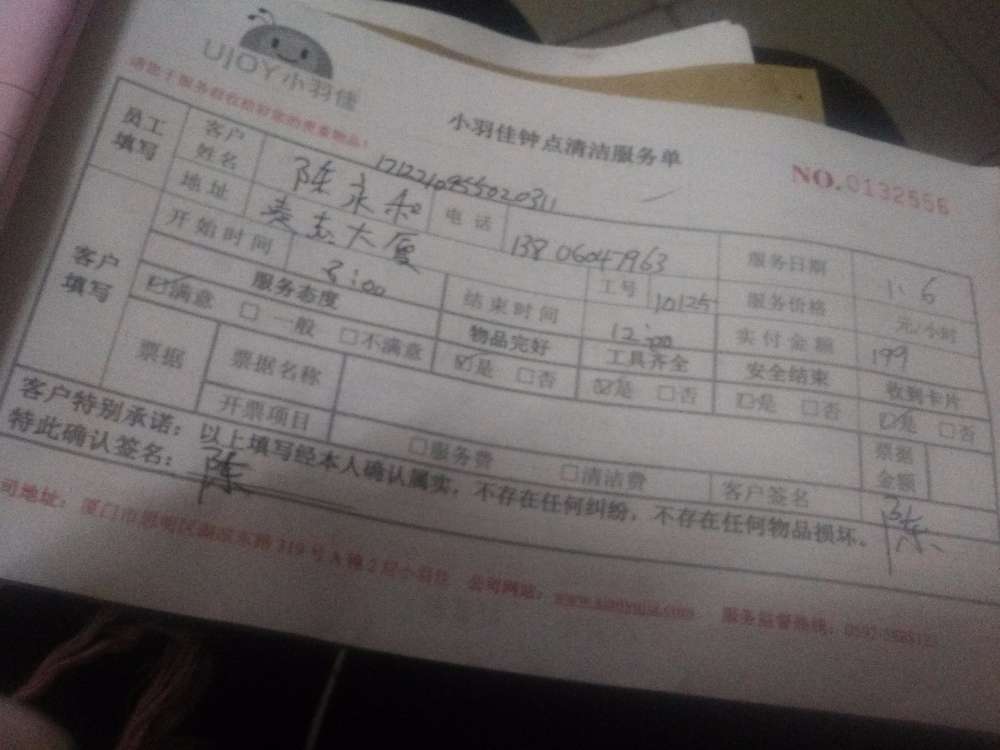 UJOY小羽佳
小羽佳钟点清洁服务单
NO.0132556
员工填写 客户姓名 陈永和 电话 13806047963 服务日期 1.6
地址 大厦 工号 10125 服务价格 元/小时
客户填写 开始时间 结束时间 12:00 实付金额 199
服务态度 物品完好 工具齐全 安全结束 收到卡片
☑满意 □一般 □不满意 ☑是 □否 ☑是 □否 ☑是 □否 ☑是 □否
票据 票据名称 票据金额
开票项目 □服务费 □清洁费 客户签名 陈
客户特别承诺:以上填写经本人确认属实,不存在任何纠纷,不存在任何物品损坏。
特此确认签名:陈
司地址:厦门市思明区 319号A栋2层小羽佳 公司网站:www.xiaoyujia.com 服务监督热线: